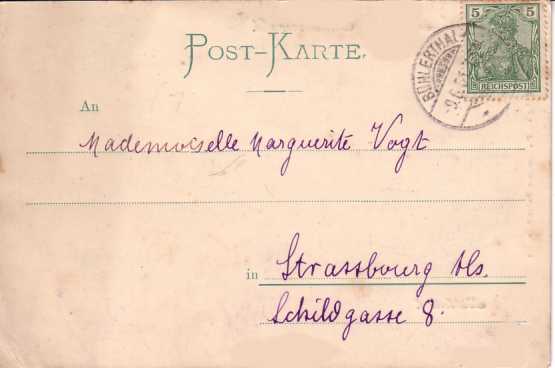 POST-KARTE.
5 5
REICHSPOST
BÜHLERTHAL
An
Mademoiselle Marguerite Vogt
in Strassbourg Els.
Schildgasse 8.